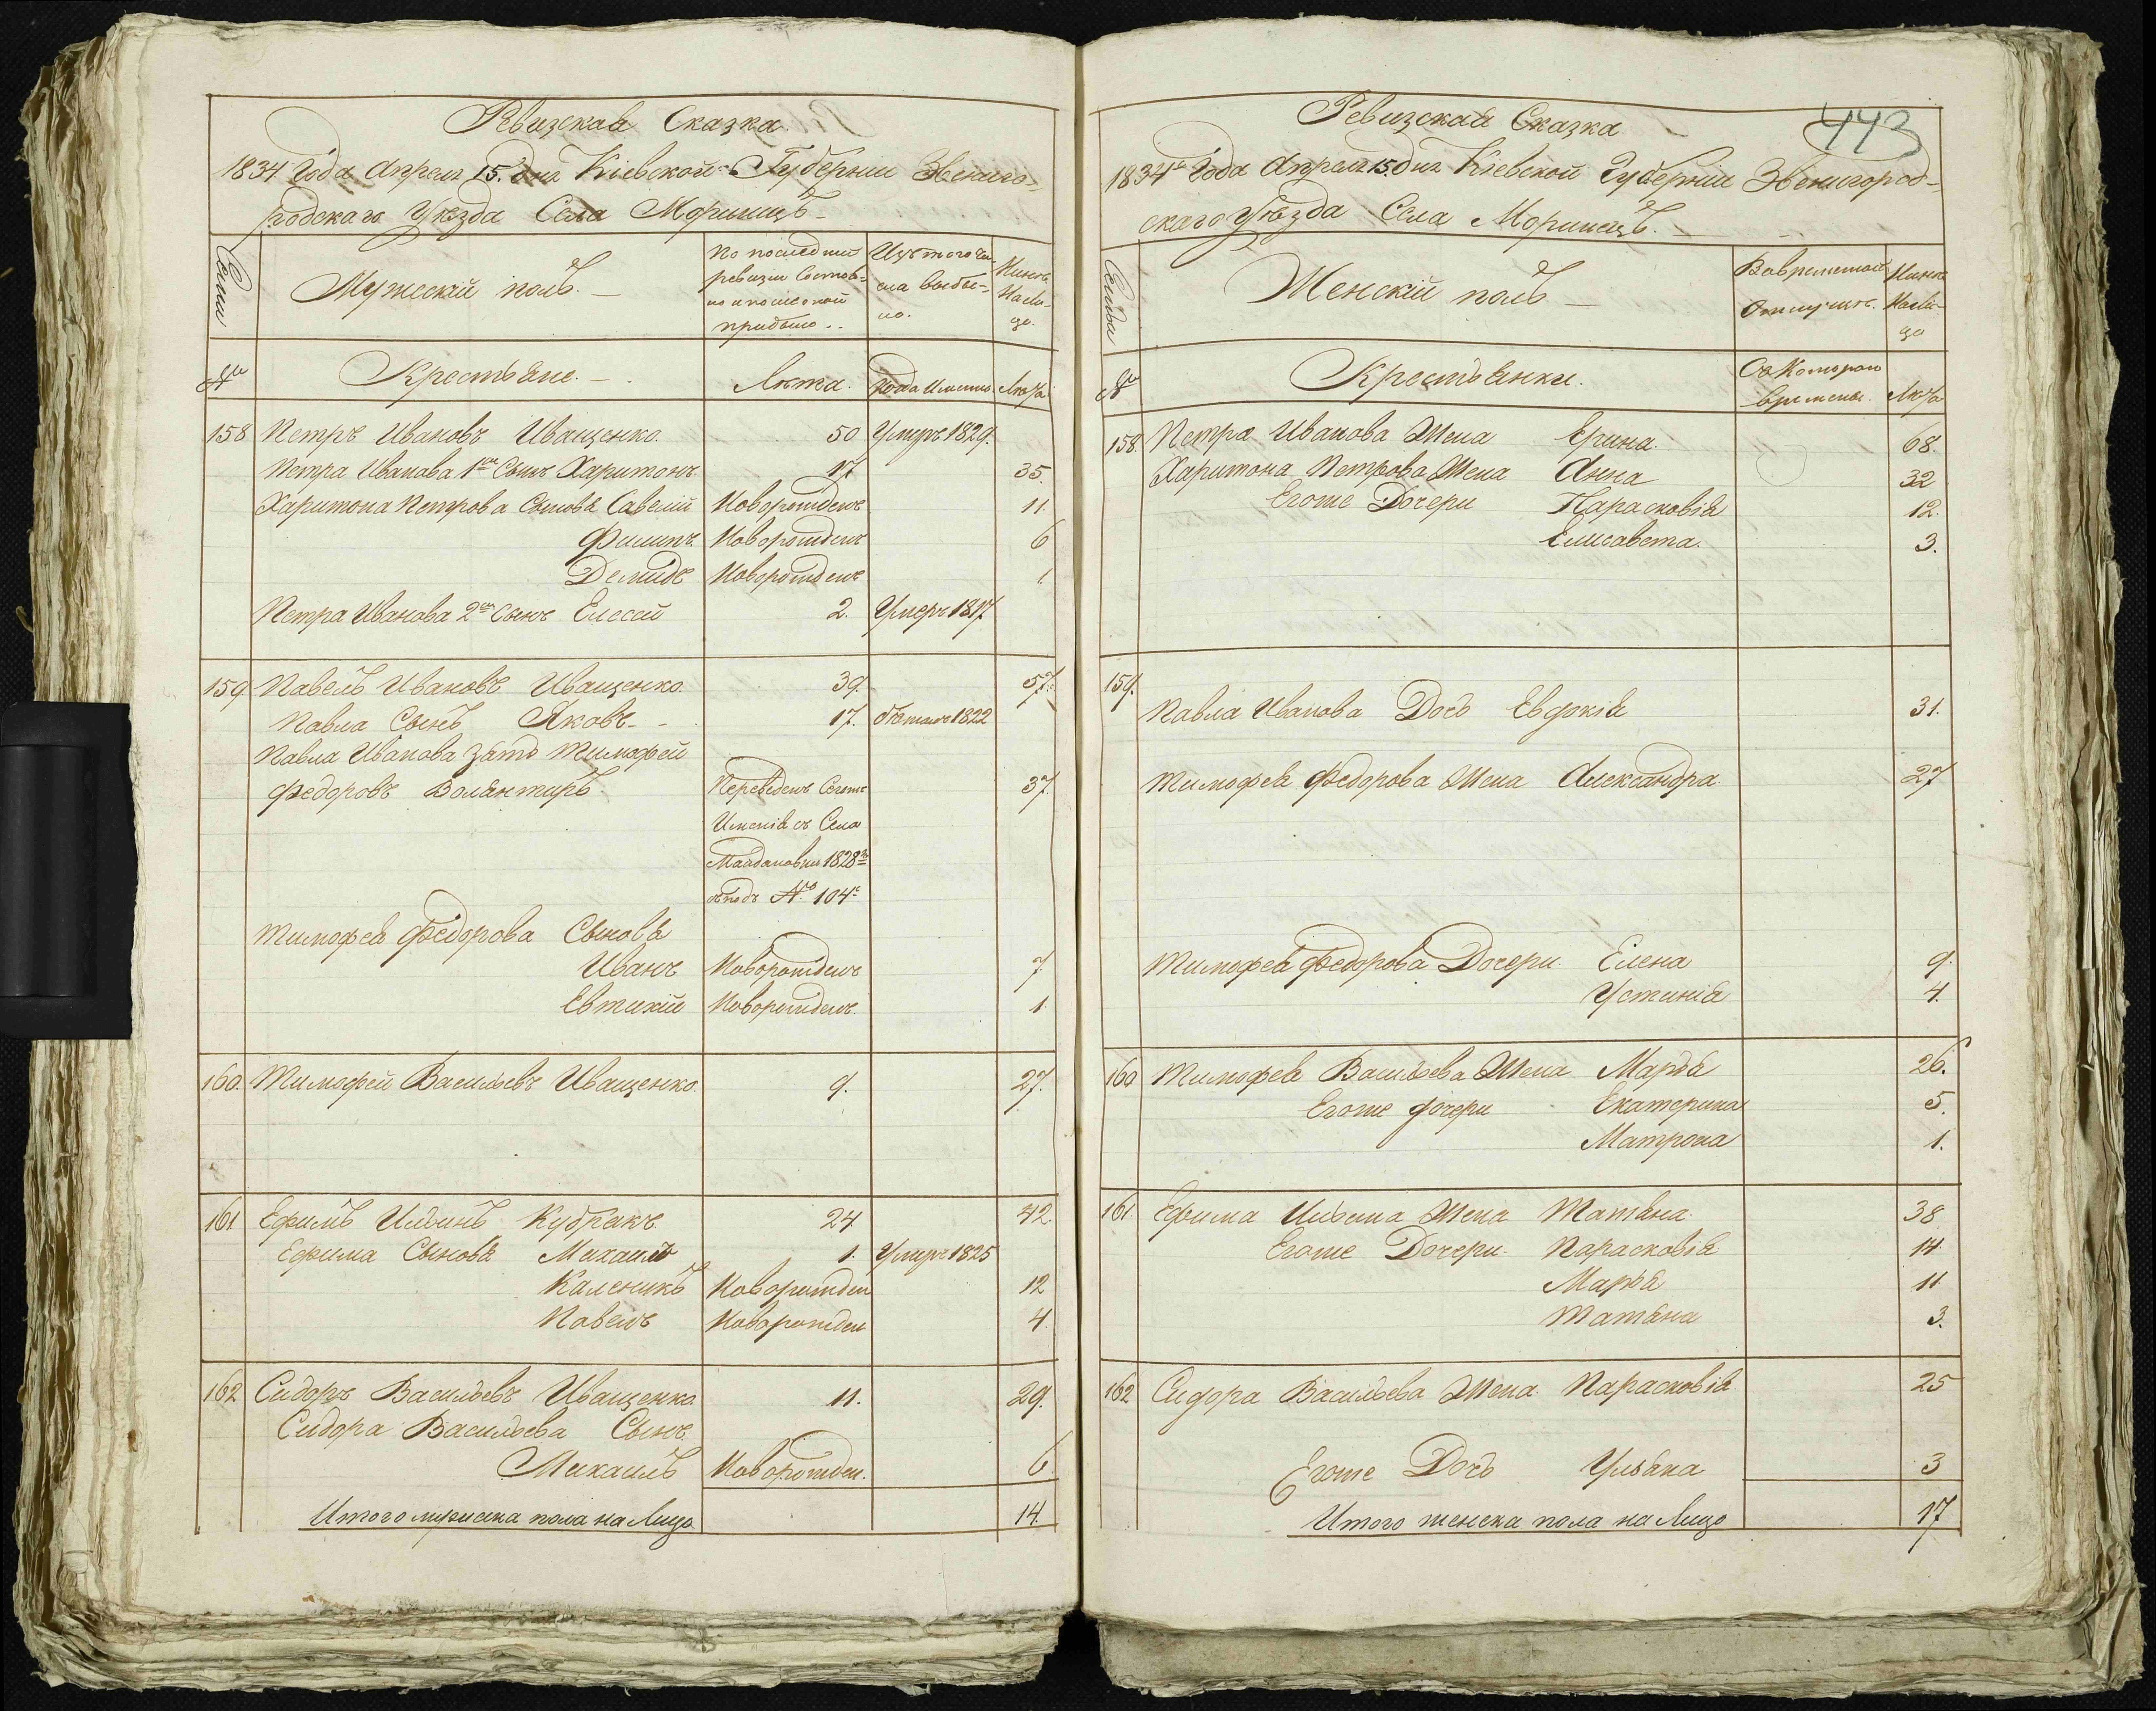 Ревизская Сказка.
1834 Года Апреля 15. дня Кіевской Губерніи Звениго-
родскаго Уезда Села Моринцъ
Семьи
Мужескій полъ.
По последней
ревизіи состоя-
ло и после оной
прибыло
Изъ того чи-
сла выбы-
ло.
Ныне
На ли-
цо.
№
Крестьяне.
Лета.
Лета
158 Петръ Ивановъ Иващенко. 50 Умеръ 1829.
Петра Иванова 1й Сынъ Харитонъ. 17 35.
Харитона Петрова Сыновья Савелій Новорожденъ 11.
Филипъ Новорожденъ 6
Демидъ Новорожденъ 1
Петра Иванова 2й Сынъ Елесей 2. Умеръ 1817
159 Павелъ Ивановъ Иващенко. 39. 57.
Павла Сынъ Яковъ 17. бежалъ 1822
Павла Иванова зять Тимофей
Федоровъ Волянтиръ Переведенъ Сегоже 37.
Именія съ Села
Майдановки 1828го
подъ № 104.
Тимофея Федорова Сыновья
Иванъ Новорожденъ 7
Евтихій Новорожденъ. 1.
160. Тимофей Васильевъ Иващенко. 9. 27.
161 Ефимъ Ильинъ Кудрякъ 24 42.
Ефима Сыновья Михаилъ 1. Умеръ 1825
Каленикъ Новорожден 12
Павелъ Новорожден 4.
162 Сидоръ Васильевъ Иващенко. 11. 29.
Сидора Васильева Сынъ
Михаилъ Новорожден. 6.
Итого мужеска пола на Лицо 14.
443
Ревизская Сказка
1834го Года Апреля 15. дня Кіевской Губерніи Звенигород-
скаго Уезда Села Моринецъ.
Семьи
Женскій полъ
Во временной
Отлучке.
Ныне
На ли-
цо
№
Крестьянки.
Съ Котораго
времени.
Лета
158. Петра Иванова Жена Ерина. 68.
Харитона Петрова Жена Анна 32
Егоже Дочери Парасковія 12.
Елисавета. 3.
159.
Павла Иванова Дочь Евдокія 31.
Тимофея Федорова Жена Александра. 27
Тимофея Федорова Дочери Елена 9.
Устинія 4.
160 Тимофея Васильева Жена Марья 26.
Егоже дочери Екатерина 5.
Матрона 1.
161. Ефима Ильина Жена Татьяна. 38
Егоже Дочери Парасковія 14.
Марья 11
Татьяна 3.
162 Сидора Васильева Жена Парасковія 25
Егоже Дочь Ульяна 3
Итого женска пола на Лицо 17